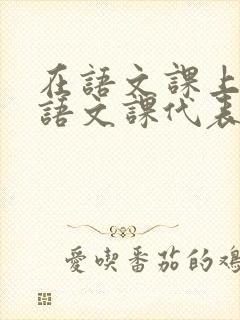 在語文課上
語文課代表
愛喫番茄的